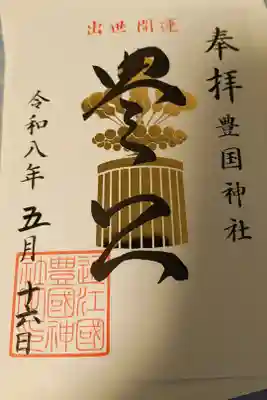 出世開運
奉拝 豊国神社
豊公
令和八年 五月 十六日
近江國
豊國神
社之印